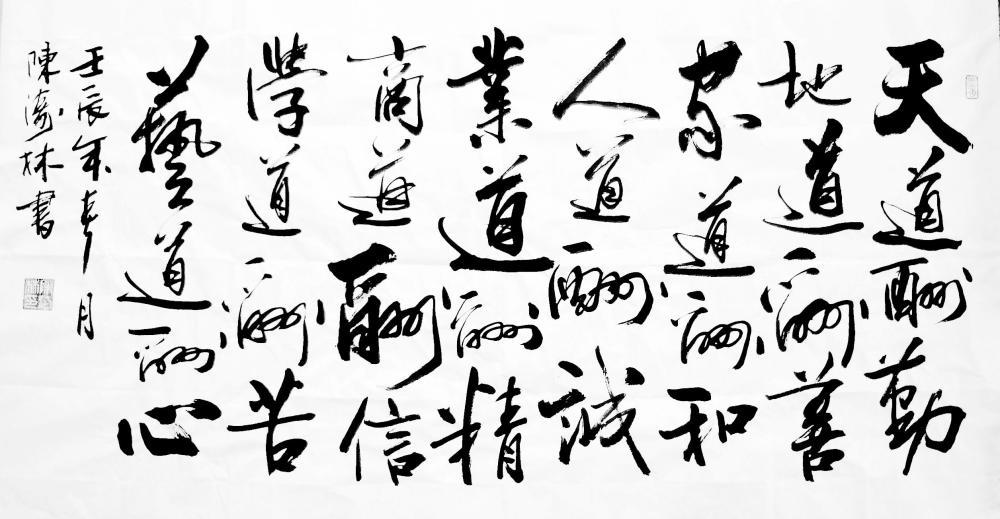 天道酬勤
地道酬善
家道酬和
人道酬誠
業道酬精
商道酬信
學道酬苦
藝道酬心
壬辰年 月
陳 林書